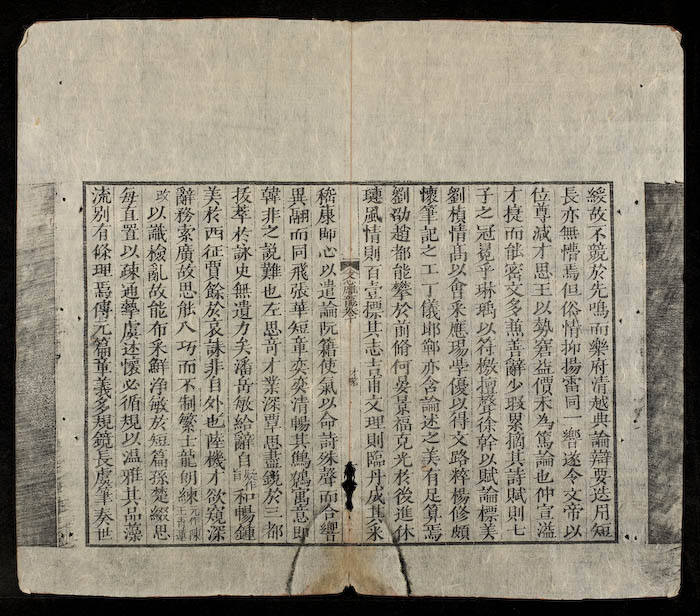 緩故不競於先鳴而樂府清越典論辯要迭用短
長亦無懵焉但俗情抑揚雷同一響遂令文帝以
位尊減才思王以勢窘益價未為篤論也仲宣溢
才捷而能密文多兼善辭少瑕累摘其詩賦則七
子之冠冕乎琳瑀以符檄擅聲徐幹以賦論標美
劉楨情高以會采應瑒學優以得文路粹楊修頗
懷筆記之工丁儀邯鄲亦含論述之美有足算焉
劉劭趙都能攀於前脩何晏景福克光於後進休
璉風情則百壹標其志吉甫文理則臨丹成其采
文心雕龍卷十
才略
嵇康師心以遣論阮籍使氣以命詩殊聲而合響
異翮而同飛張華短章奕奕清暢其鷦鷯寓意即
韓非之說難也左思奇才業深覃思盡銳於三都
拔萃於詠史無遺力矣潘岳敏給辭自和暢鍾
美於西征賈餘於哀誄非自外也陸機才欲窺深
辭務索廣故思能入巧而不制繁士龍朗練元作陳王青蓮
改以識檢亂故能布采鮮淨敏於短篇孫楚綴思
每直置以疎通摯虞述懷必循規以溫雅其品藻
流別有條理焉傅元篇章義多規鏡長虞筆奏世